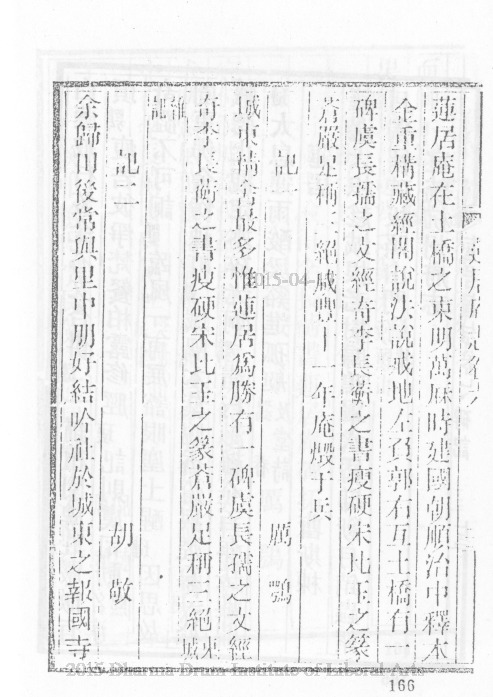 蓮居庵在土橋之東明萬厯時建國朝順治中釋本
金重構藏經閣說法說戒地左負郭右互土橋有一
碑虞長孺之文經奇李長蘅之書瘦硬宋比玉之篆
蒼嚴足稱三絕咸豐十一年庵燬于兵
記一 厲鶚
城東精舍最多惟蓮居爲勝有一碑虞長孺之文經
奇李長蘅之書瘦硬宋比玉之篆蒼嚴足稱三絕東城
雜記
記二 胡敬
余歸田後常與里中朋好結吟社於城東之報國寺
166